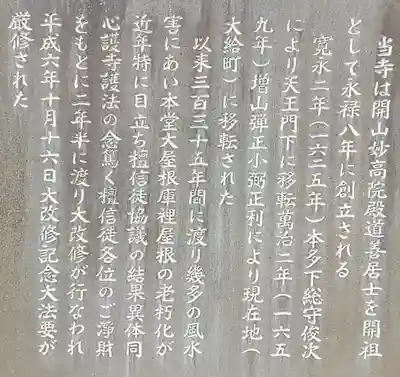 当寺は開山妙高院殿道善居士を開祖
として永禄八年に創立される
寛永二年(一六二五年)本多下総守俊次
により天王門下に移転萬治二年(一六五
九年)増山弾正小弼正利により現在地(
大給町)に移転された
以来三百三十五年間に渡り幾多の風水
害にあい本堂大屋根庫裡屋根の老朽化が
近年特に目立ち檀信徒協議の結果異体同
心護寺護法の念篤く檀信徒各位のご浄財
をもとに二年半に渡り大改修が行なわれ
平成六年十月十六日大改修記念大法要が
厳修された